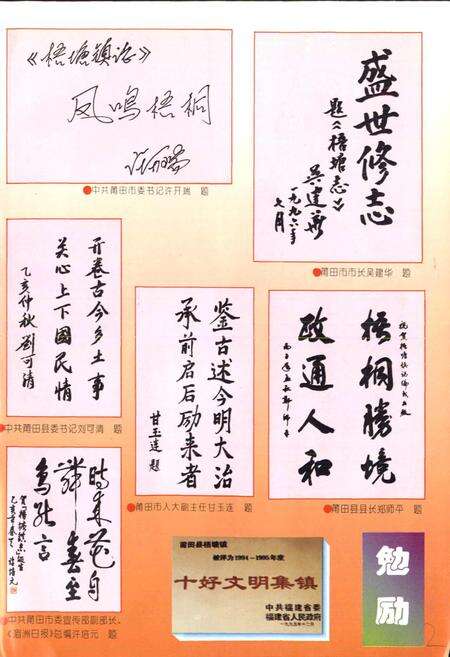 《梧塘镇志》
凤鸣梧桐
许开瑞
中共莆田市委书记许开瑞 题
盛世修志
题《梧塘志》
吴建华
一九九六年
七月
莆田市市长吴建华 题
开卷古今乡土事
关心上下国民情
乙亥仲秋刘可清
中共莆田县委书记刘可清 题
鉴古述今明大治
承前启后励来者
甘玉连 题
莆田市人大副主任甘玉连 题
祝贺梧塘镇志编成出版
梧桐胜境
政通人和
莆田县县长郑师平 题
时来花自
舞春至
鸟能言
贺《梧塘镇志》诞生
许培元
中共莆田市委宣传部副部长、
《湄洲日报》总编许培元 题
莆田县梧塘镇
被评为1994－1995年度
十好文明集镇
中共福建省委
福建省人民政府
一九九五年十二月
勉
励
2